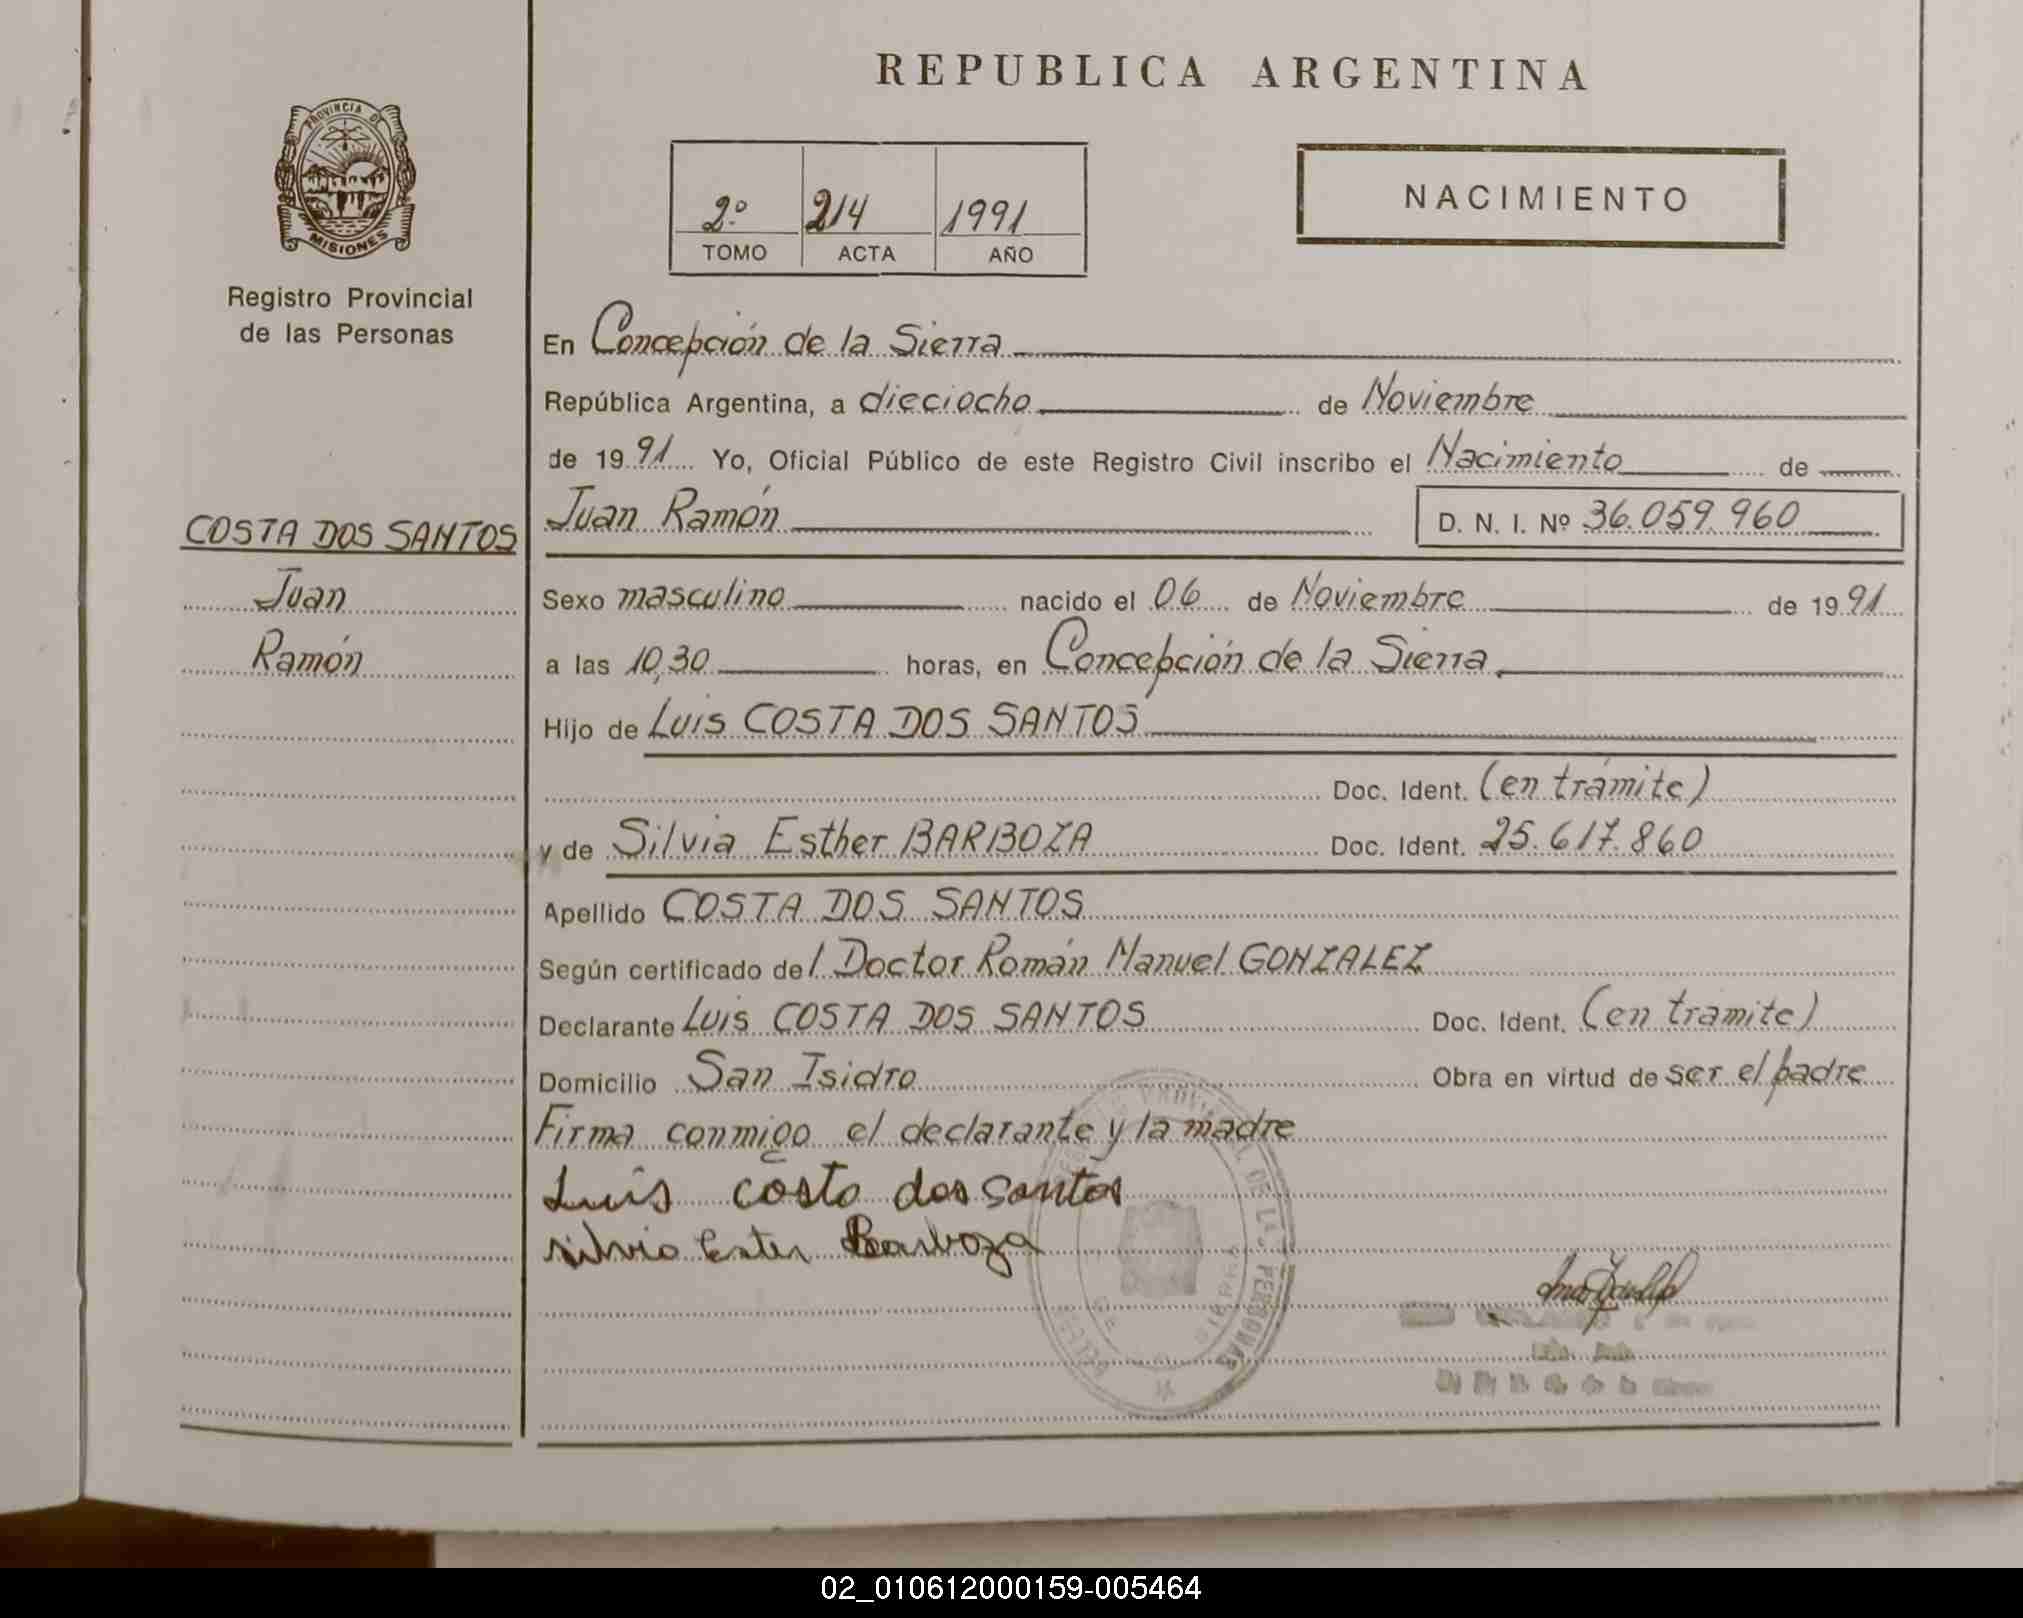 REPUBLICA ARGENTINA
PROVINCIA DE
MISIONES
Registro Provincial
de las Personas
2º 214 1991
TOMO ACTA AÑO
NACIMIENTO
En Concepción de la Sierra
República Argentina, a dieciocho de Noviembre
de 1991 Yo, Oficial Público de este Registro Civil inscribo el Nacimiento de
COSTA DOS SANTOS
Juan
Ramón
Juan Ramón D. N. I. Nº 36.059.960
Sexo masculino nacido el 06 de Noviembre de 1991
a las 10,30 horas, en Concepción de la Sierra
Hijo de Luis COSTA DOS SANTOS
Doc. Ident. (en trámite)
y de Silvia Esther BARBOZA Doc. Ident. 25.617.860
Apellido COSTA DOS SANTOS
Según certificado del Doctor Román Manuel GONZALEZ
Declarante Luis COSTA DOS SANTOS Doc. Ident. (en tramite)
Domicilio San Isidro Obra en virtud de ser el padre
Firma conmigo el declarante y la madre
Luis costa dos santos
silvia Ester Barboza
02_010612000159-005464